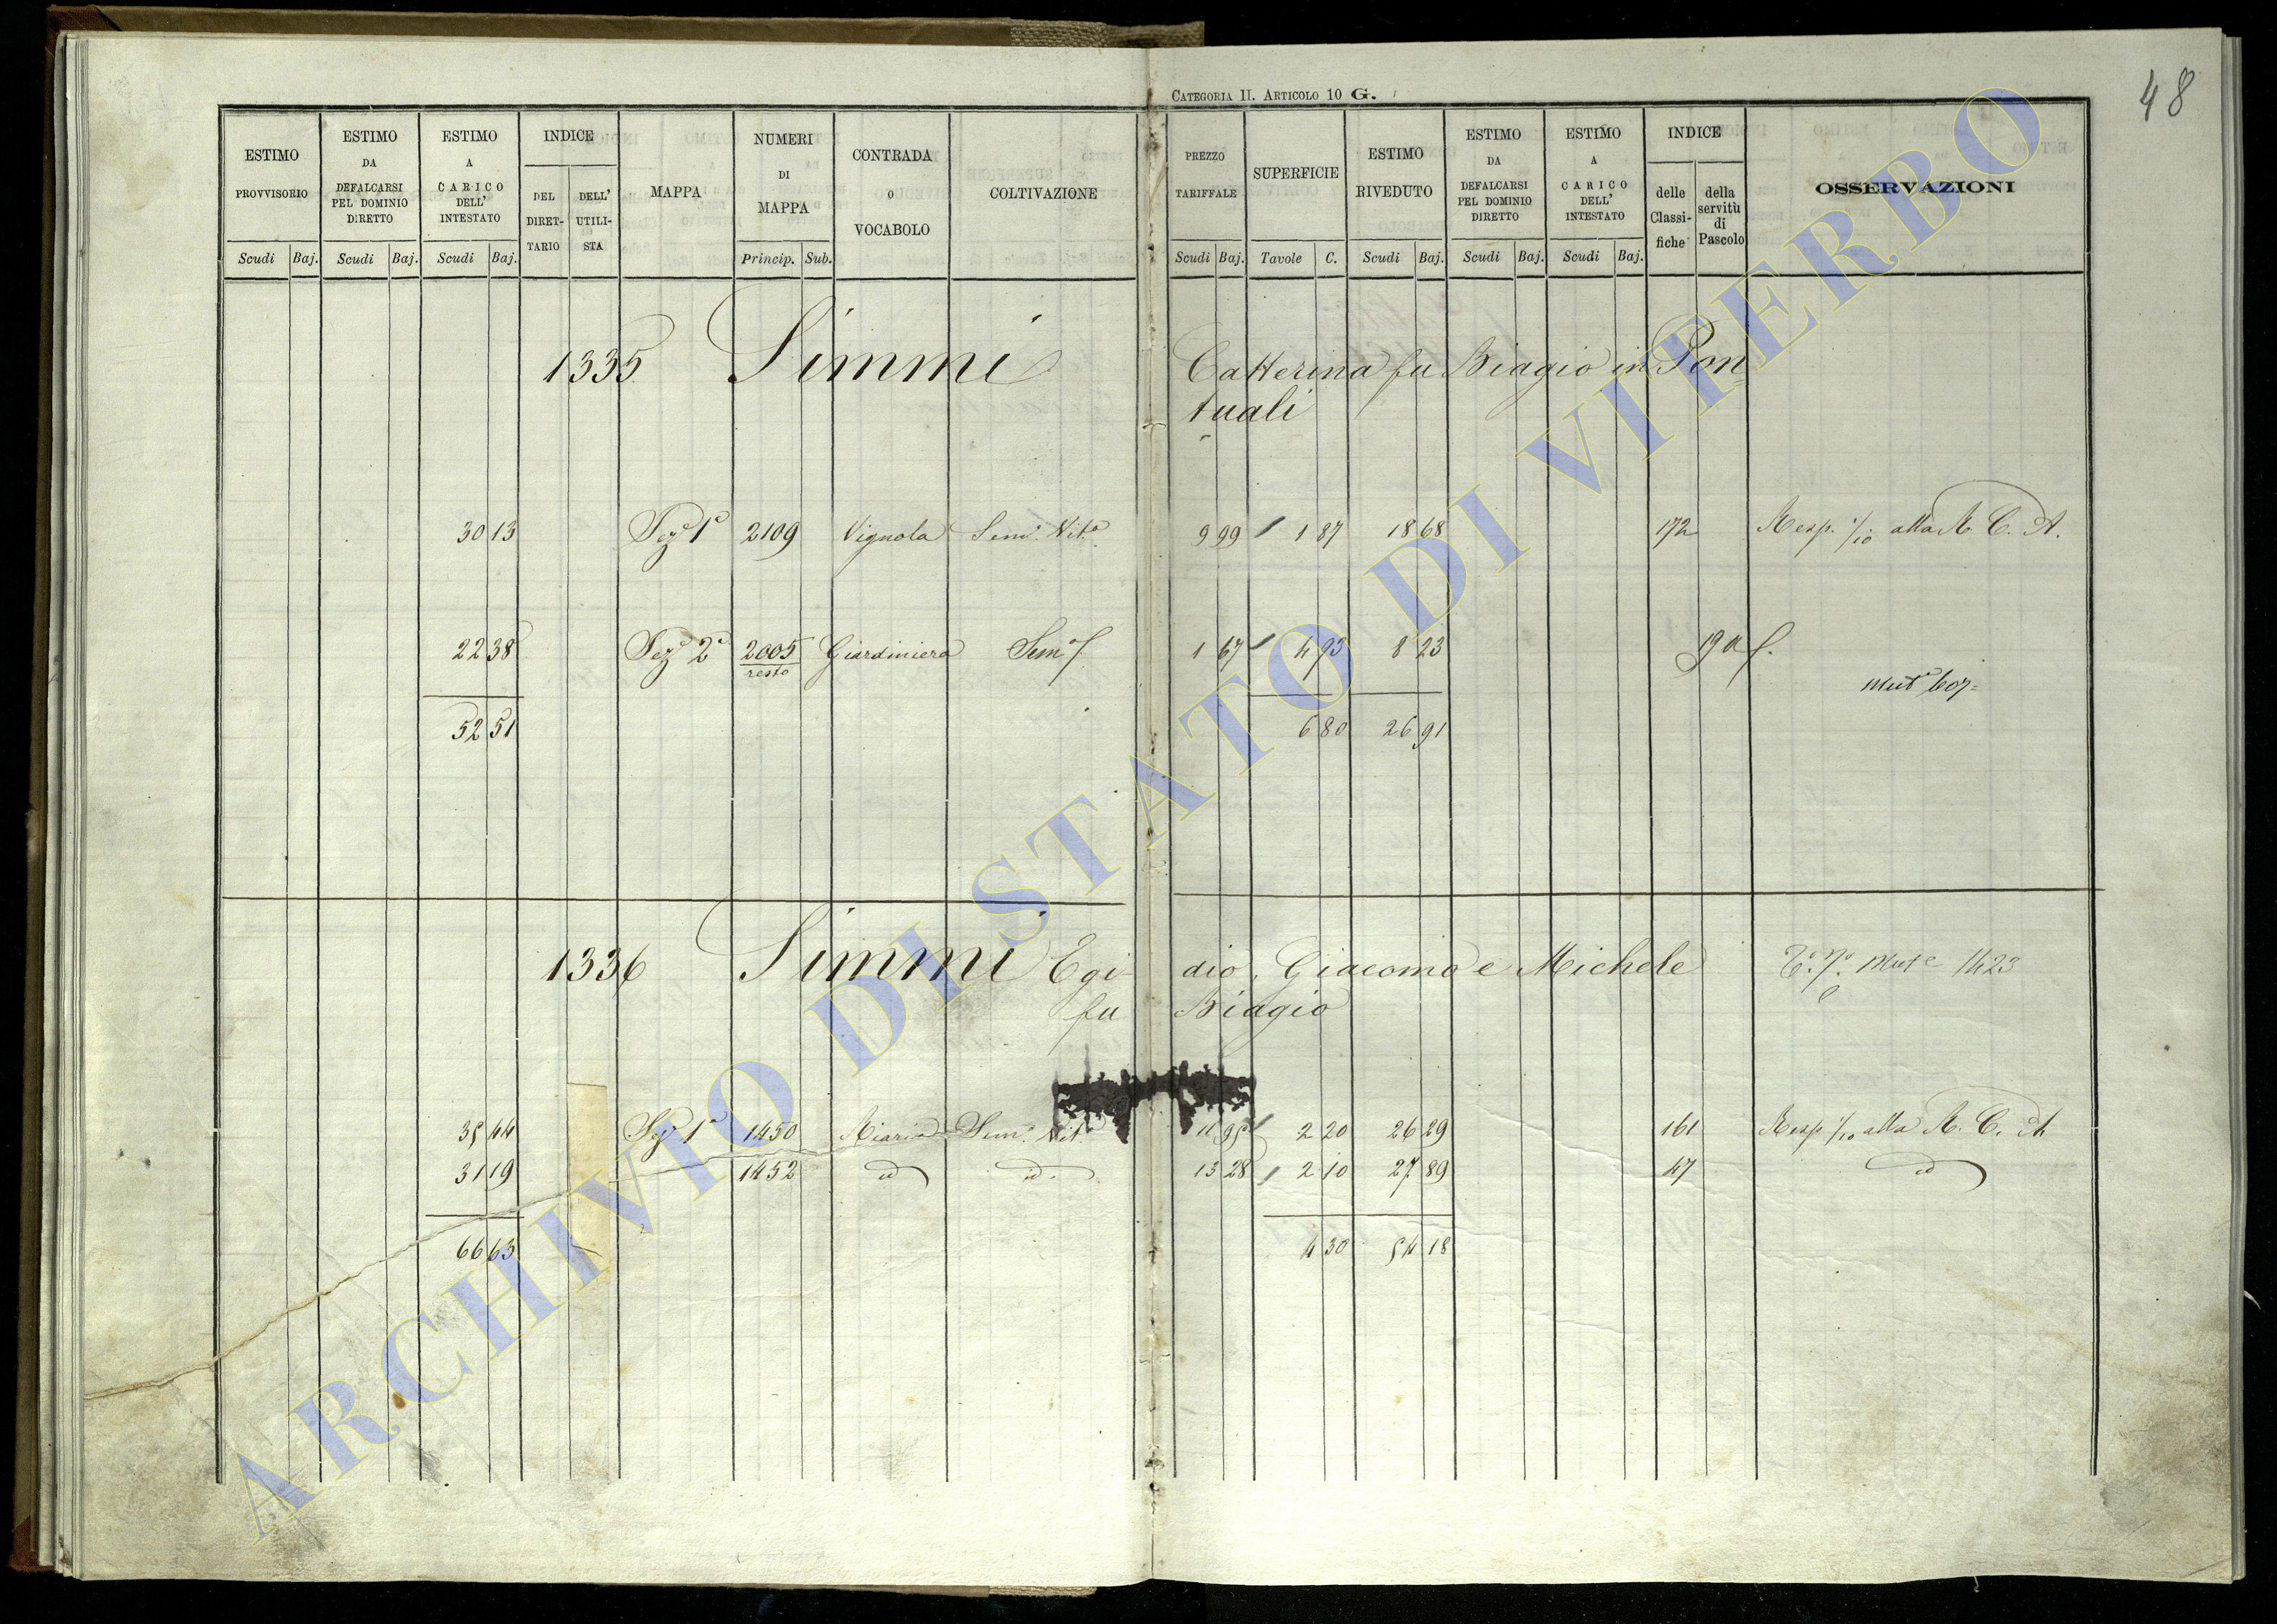 CATEGORIA II. ARTICOLO 10 G.
48
ESTIMO PROVVISORIO
ESTIMO DA DEFALCARSI PEL DOMINIO DIRETTO
ESTIMO A CARICO DELL' INTESTATO
INDICE
DEL DIRET-TARIO
DELL' UTILI-STA
MAPPA
NUMERI DI MAPPA
CONTRADA O VOCABOLO
COLTIVAZIONE
PREZZO TARIFFALE
SUPERFICIE
ESTIMO RIVEDUTO
ESTIMO DA DEFALCARSI PEL DOMINIO DIRETTO
ESTIMO A CARICO DELL' INTESTATO
INDICE
delle Classi-fiche
della servitù di Pascolo
OSSERVAZIONI
Scudi Baj. Scudi Baj. Scudi Baj. Princip. Sub. Scudi Baj. Tavole C. Scudi Baj. Scudi Baj. Scudi Baj.
1335 Simmi Catterina fu Biagio in Pon
tuali
30 13 Sez.e 1a 2109 Vignola Sem.o Vit.o 9 99 1 87 18 68 172 Resp. 1/10 alla R. C. A.
22 38 Sez.e 2a 2005 Giardiniera Sem.o 1 67 4 93 8 23 19 a f.
resto
Mut.e 607
52 51 6 80 26 91
1336 Simmi Egi dio, Giacomo e Michele Mut.e 1423
fu Biagio
35 44 Sez.e 1a 1450 Riario Sem.o Vit.o 11 95 2 20 26 29 161 Resp. 1/10 alla R. C. A.
31 19 1452 id id. 13 28 2 10 27 89 47 id
66 63 4 30 54 18
ARCHIVIO DI STATO DI VITERBO